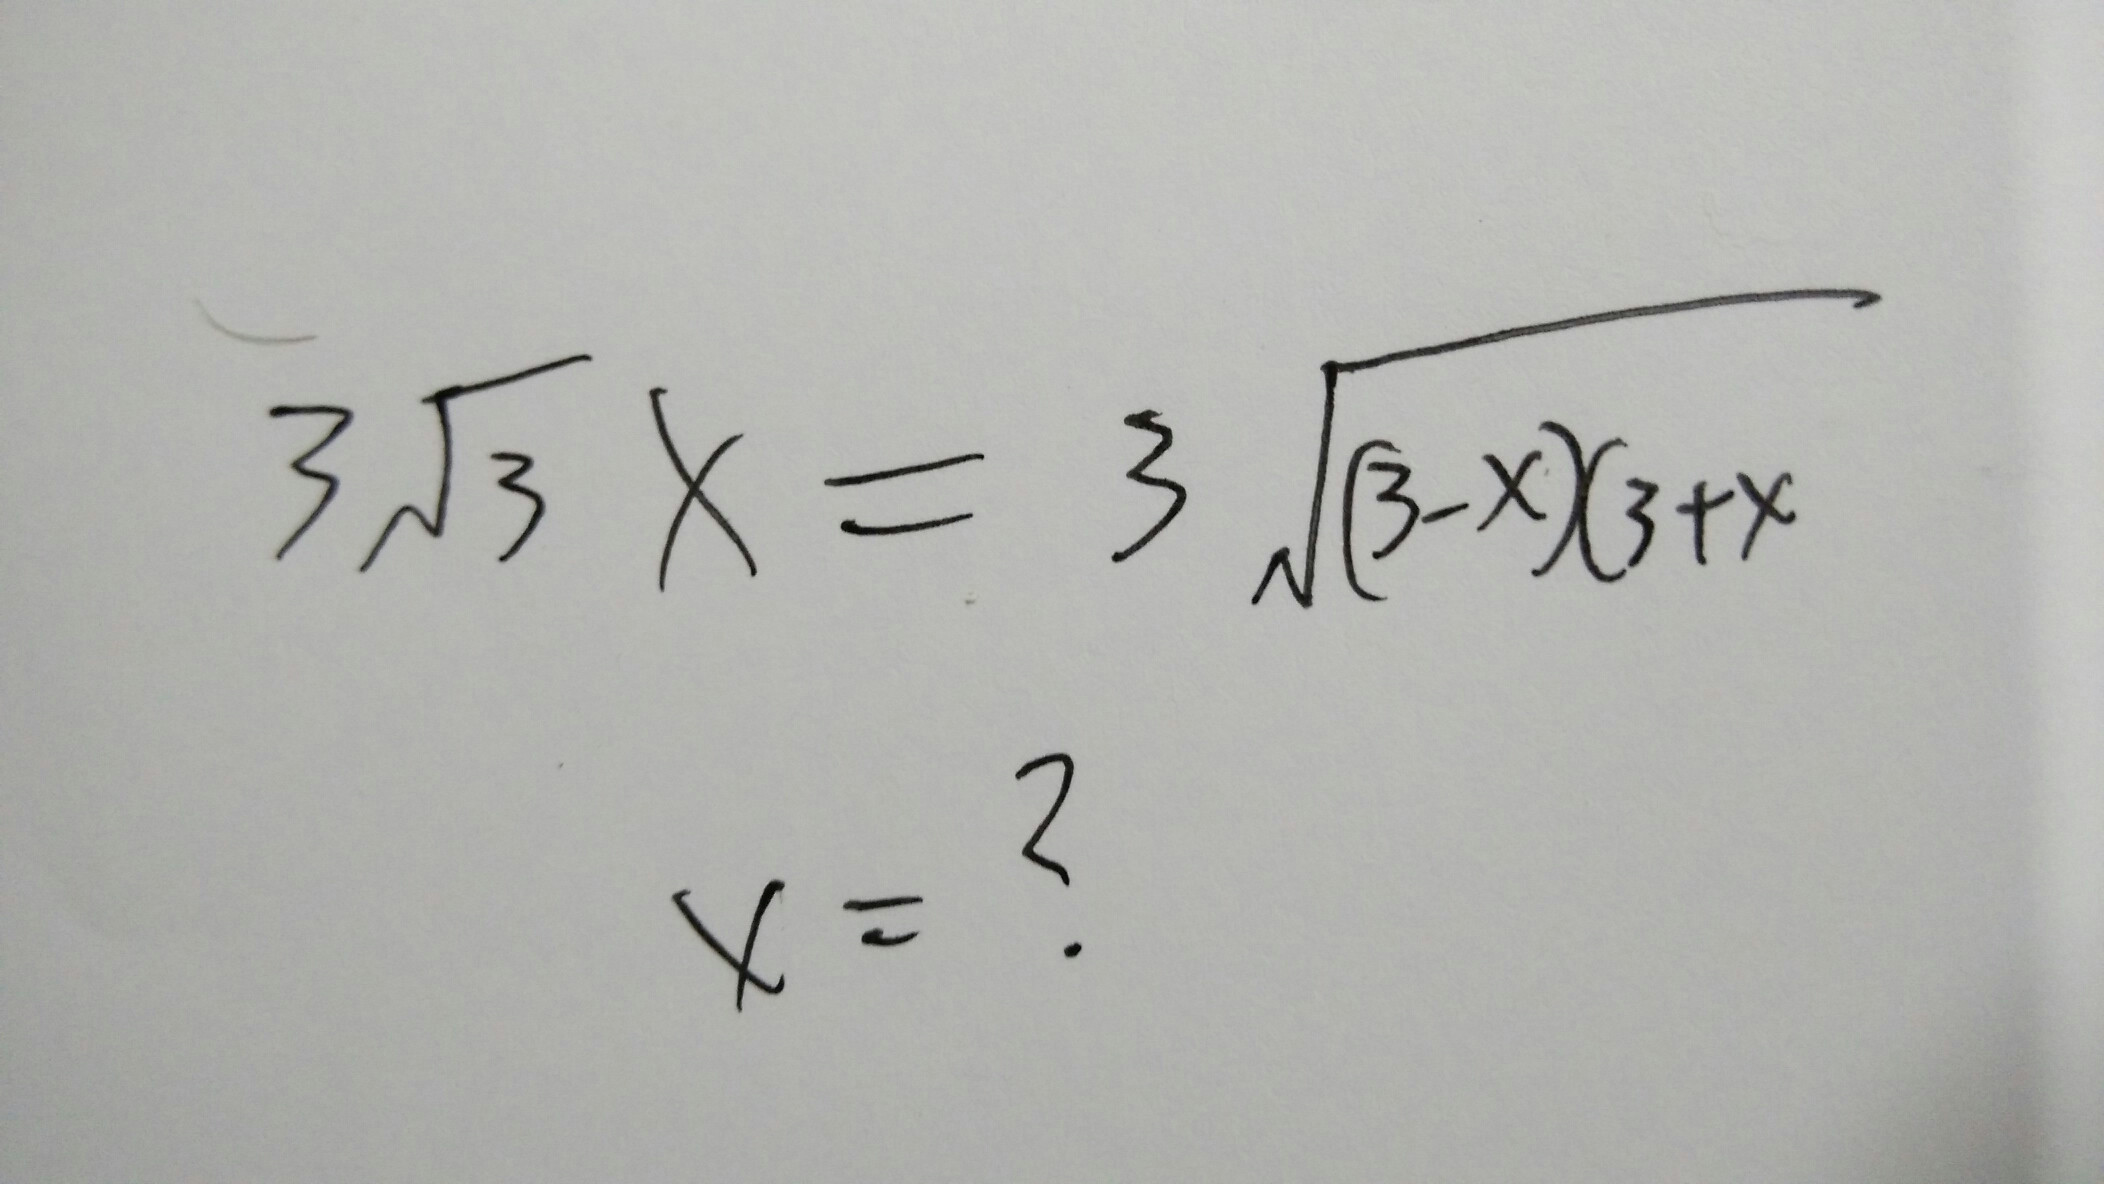 3√3 x = 3 √(3-x)(3+x
x = ?